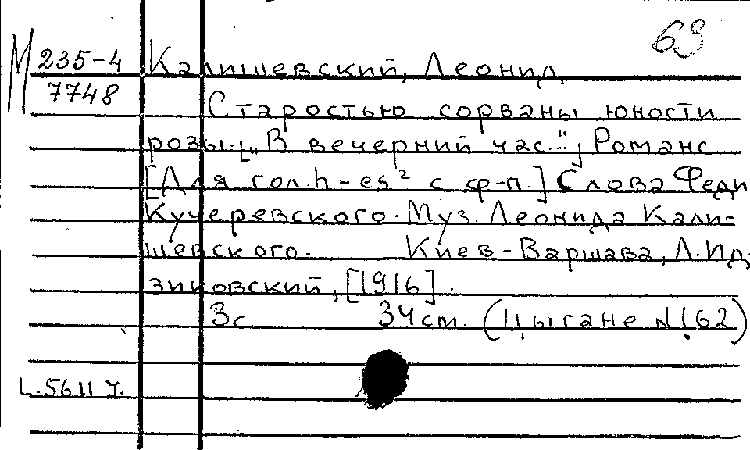 69
М 235-4 Калишевский, Леонид
7748 Старостью сорваны юности
розы. [„В вечерний час..."] Романс
[Для гол. h-es² с ф-п.] Слова Феди
Кучеревского. Муз. Леонида Кали-
шевского. Киев-Варшава, Л. Ид-
зиковский, [1916].
3с 34 см. (Цыгане №162)